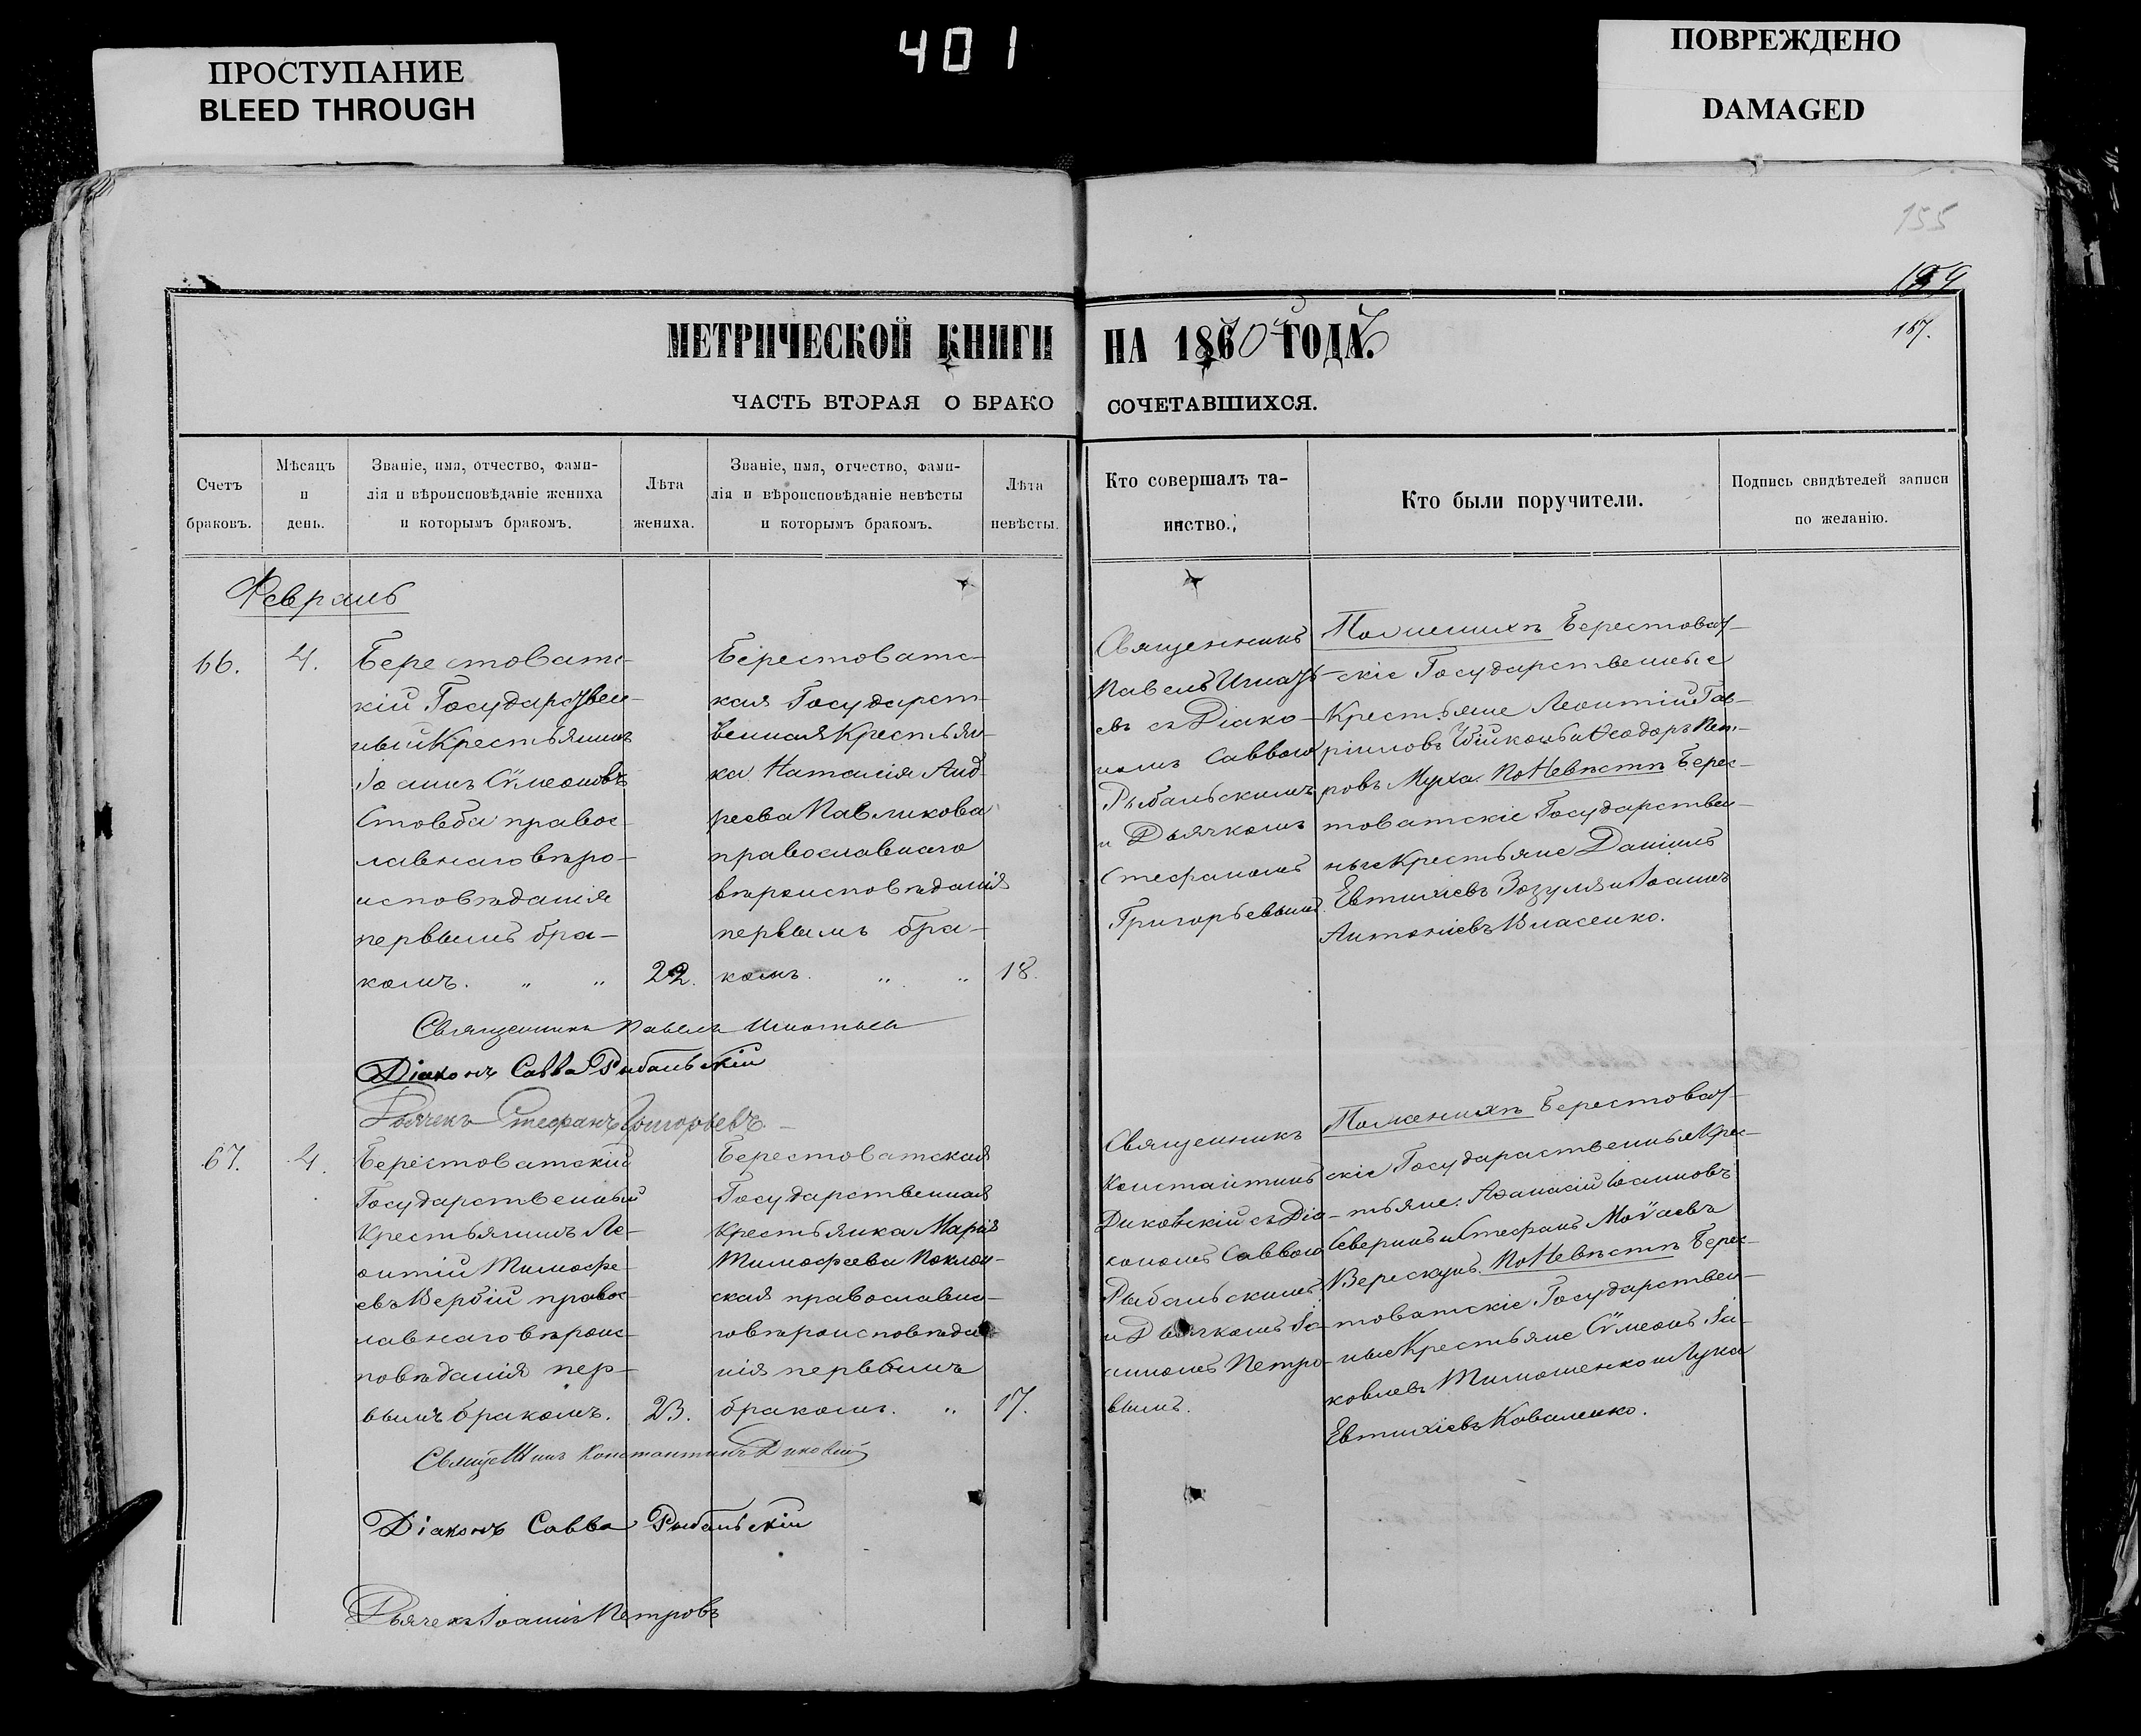 401
ПРОСТУПАНИЕ
BLEED THROUGH
ПОВРЕЖДЕНО
DAMAGED
155
167.
МЕТРИЧЕСКОЙ КНИГИ НА 1860 ГОДА.
ЧАСТЬ ВТОРАЯ О БРАКОСОЧЕТАВШИХСЯ.
Счетъ
браковъ.
Мѣсяцъ
и
день.
Званіе, имя, отчество, фами-
лія и вѣроисповѣданіе жениха
и которымъ бракомъ.
Лѣта
жениха.
Званіе, имя, отчество, фами-
лія и вѣроисповѣданіе невѣсты
и которымъ бракомъ.
Лѣта
невѣсты.
Кто совершалъ та-
инство.
Кто были поручители.
Подпись свидѣтелей записи
по желанію.
Февраль
66.
4.
Берестоватс-
кій Государствен-
ный Крестьянинъ
Іоаннъ Сѵмеоновъ
Стовба правос-
лавнаго вѣро-
исповѣданія
первымъ бра-
комъ. „ „
22.
Берестоватс-
кая Государст-
венная Крестьян-
ка Наталія Анд-
реева Павликова
православнаго
вѣроисповѣданія
первымъ бра-
комъ. „ „
18.
Священникъ
Павелъ Игнать-
евъ съ Діако-
номъ Саввою
Рыбальскимъ
и Дьячкомъ
Стефаномъ
Григорьевымъ.
По женихѣ Берестоват-
скіе Государственные
Крестьяне Леонтій Гав-
ріиловъ и Ѳеодоръ Пет-
ровъ Муха. По Невѣстѣ Берес-
товатскіе Государствен-
ные Крестьяне Даніилъ
Евтихіевъ Зозуля и Іоаннъ
Антоніевъ Власенко.
Священникъ Павелъ Игнатьевъ
Діаконъ Савва Рыбальскій
Дьячекъ Стефанъ Григорьевъ.
67.
4.
Берестоватскій
Государственный
Крестьянинъ Ле-
онтій Тимофе-
евъ Вербій правос-
лавнаго вѣроис-
повѣданія пер-
вымъ бракомъ.
23.
Берестоватская
Государственная
Крестьянка Марія
Тимофеева Поклон-
ская православна-
го вѣроисповѣда-
нія первымъ
бракомъ. „
17.
Священникъ
Константинъ
Диковскій съ Діа-
кономъ Саввою
Рыбальскимъ
и Дьячкомъ Іо-
анномъ Петро-
вымъ.
По женихѣ Берестоват-
скіе Государаственные Крес-
тьяне. Аѳанасій Іоанновъ
Северинъ и Стефанъ Моѵсеевъ
Верескунъ. По Невѣстѣ Берес-
товатскіе Государствен-
ные Крестьяне Сѵмеонъ Іа-
ковлевъ Тимошенко и Лука
Евтихіевъ Коваленко.
Священникъ Константинъ Диковскій
Діаконъ Савва Рыбальскій
Дьячекъ Іоаннъ Петровъ